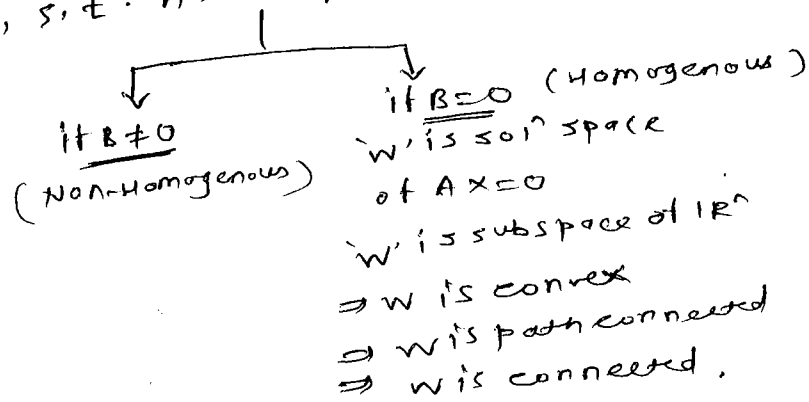 , s.t.
if B ≠ 0
(Non-Homogenous)
if B=0 (Homogenous)
'W' is solⁿ space
of AX=0
'W' is subspace of ℝⁿ
⇒ W is convex
⇒ W is path connected
⇒ W is connected.